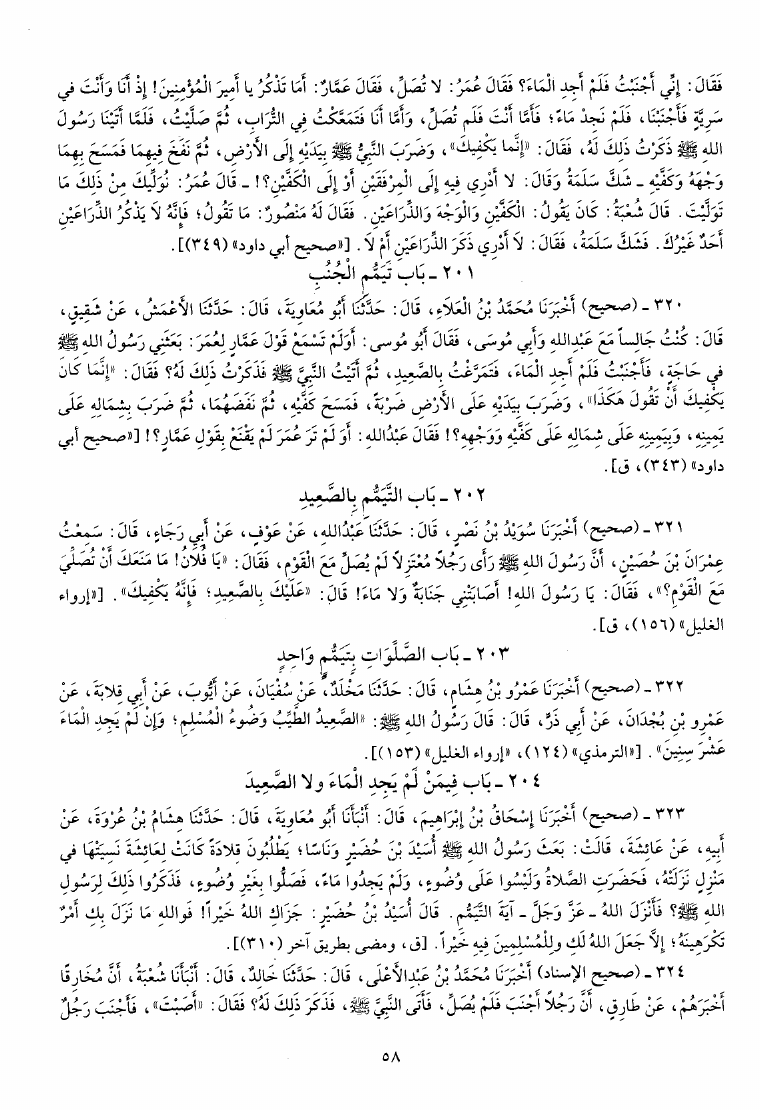 فَقَالَ: إِنِّي أَجْنَبْتُ فَلَمْ أَجِدِ الْمَاءَ؟ فَقَالَ عُمَرُ: لا تُصَلِّ، فَقَالَ عَمَّارٌ: أَمَا تَذْكُرُ يا أَمِيرَ الْمُؤْمِنِينَ! إِذْ أَنَا وَأَنْتَ في
سَرِيَّةٍ فَأَجْنَبْنَا، فَلَمْ نَجِدْ مَاءً؛ فَأَمَّا أَنْتَ فَلَم تُصَلِّ، وَأَمَّا أَنَا فَتَمَعَّكْتُ فِي التُّرَابِ، ثُمَّ صَلَّيْتُ، فَلَمَّا أَتَيْنَا رَسُولَ
الله ﷺ ذَكَرْتُ ذَلِكَ لَهُ، فَقَالَ: «إِنَّما يَكْفِيكَ»، وَضَرَبَ النَّبِيُّ ﷺ بِيَدَيْهِ إِلَى الأَرْضِ، ثُمَّ نَفَخَ فِيهِمَا فَمَسَحَ بِهِمَا
وَجْهَهُ وَكَفَّيْهِ ـ شَكَّ سَلَمَةُ وَقَالَ: لا أَدْرِي فِيهِ إِلَى الْمِرْفَقَيْنِ أَوْ إِلَى الْكَفَّيْنِ؟! ـ قَالَ عُمَرُ: نُوَلِّيكَ مِنْ ذَلِكَ مَا
تَوَلَّيْتَ. قَالَ شُعْبَةُ: كَانَ يَقُولُ: الْكَفَّيْنِ وَالْوَجْهَ وَالذِّرَاعَيْنِ. فَقَالَ لَهُ مَنْصُورٌ: مَا تَقُولُ؛ فَإِنَّهُ لاَ يَذْكُرُ الذِّرَاعَيْنِ
أَحَدٌ غَيْرُكَ. فَشَكَّ سَلَمَةُ، فَقَالَ: لاَ أَدْرِي ذَكَرَ الذِّرَاعَيْنِ أَمْ لاَ. [«صحيح أبي داود» (٣٤٩)].
٢٠١ ـ بَاب تَيَمُّمِ الْجُنُبِ
٣٢٠ ـ (صحيح) أَخْبَرَنَا مُحَمَّدُ بْنُ الْعَلاَءِ، قَالَ: حَدَّثَنَا أَبُو مُعَاوِيَةَ، قَالَ: حَدَّثَنَا الأَعْمَشُ، عَنْ شَقِيقٍ،
قَالَ: كُنْتُ جَالِساً مَعَ عَبْدِاللهِ وَأَبِي مُوسَى، فَقَالَ أَبُو مُوسى: أَوَلَمْ تَسْمَعْ قَوْلَ عَمَّارٍ لِعُمَرَ: بَعَثَنِي رَسُولُ الله ﷺ
في حَاجَةٍ، فَأَجْنَبْتُ فَلَمْ أَجِدِ الْمَاءَ، فَتَمَرَّغْتُ بِالصَّعِيدِ، ثُمَّ أَتَيْتُ النَّبِيَّ ﷺ فَذَكَرْتُ ذَلِكَ لَهُ؟ فَقَالَ: «إِنَّمَا كَانَ
يَكْفِيكَ أَنْ تَقُولَ هَكَذَا»، وَضَرَبَ بِيَدَيْهِ عَلَى الأَرْضِ ضَرْبَةً، فَمَسَحَ كَفَّيْهِ، ثُمَّ نَفَضَهُمَا، ثُمَّ ضَرَبَ بِشِمَالِهِ عَلَى
يَمِينِهِ، وَبِيَمِينِهِ عَلَى شِمَالِهِ عَلَى كَفَّيْهِ وَوَجْهِهِ؟! فَقَالَ عَبْدُاللهِ: أَوَ لَمْ تَرَ عُمَرَ لَمْ يَقْنَعْ بِقَوْلِ عَمَّارٍ؟! [«صحيح أبي
داود» (٣٤٣)، ق].
٢٠٢ ـ بَاب التَّيَمُّمِ بِالصَّعِيدِ
٣٢١ ـ (صحيح) أَخْبَرَنَا سُوَيْدُ بْنُ نَصْرٍ، قَالَ: حَدَّثَنَا عَبْدُالله، عَنْ عَوْفٍ، عَنْ أَبِي رَجَاءٍ، قَالَ: سَمِعْتُ
عِمْرَانَ بْنَ حُصَيْنٍ، أَنَّ رَسُولَ اللهِ ﷺ رَأَى رَجُلاً مُعْتَزِلاً لَمْ يُصَلِّ مَعَ الْقَوْمِ، فَقَالَ: «يَا فُلاَنُ! مَا مَنَعَكَ أَنْ تُصَلِّيَ
مَعَ الْقَوْمِ؟»، فَقَالَ: يَا رَسُولَ اللهِ! أَصَابَتْنِي جَنَابَةٌ وَلا مَاءَ! قَالَ: «عَلَيْكَ بِالصَّعِيدِ؛ فَإِنَّهُ يَكْفِيكَ». [«إرواء
الغليل» (١٥٦)، ق].
٢٠٣ ـ بَاب الصَّلَوَاتِ بِتَيَمُّمٍ وَاحِدٍ
٣٢٢ ـ (صحيح) أَخْبَرَنَا عَمْرُو بْنُ هِشَامٍ، قَالَ: حَدَّثَنَا مَخْلَدٌ، عَنْ سُفْيَانَ، عَنْ أَيُّوبَ، عَنْ أَبِي قِلابَةَ، عَنْ
عَمْرِو بْنِ بُجْدَانَ، عَنْ أَبي ذَرٍّ، قَالَ: قَالَ رَسُولُ الله ﷺ: «الصَّعِيدُ الطَّيِّبُ وَضُوءُ الْمُسْلِمِ؛ وَإِن لَمْ يَجِدِ الْمَاءَ
عَشْرَ سِنِينَ». [«الترمذي» (١٢٤)، «إرواء الغليل» (١٥٣)].
٢٠٤ ـ بَاب فِيمَنْ لَمْ يَجِدِ الْمَاءَ ولا الصَّعِيدَ
٣٢٣ ـ (صحيح) أَخْبَرَنَا إِسْحَاقُ بْنُ إِبْرَاهِيمَ، قَالَ: أَنْبَأَنَا أَبُو مُعَاوِيَةَ، قَالَ: حَدَّثَنَا هِشَامُ بْنُ عُرْوَةَ، عَنْ
أَبِيهِ، عَنْ عَائِشَةَ، قَالَتْ: بَعَثَ رَسُولُ اللهِ ﷺ أُسَيْدَ بْنَ حُضَيْرٍ وَنَاسًا؛ يَطْلُبُونَ قِلادَةً كَانَتْ لِعَائِشَةَ نَسِيَتْهَا في
مَنْزِلٍ نَزَلَتْهُ، فَحَضَرَتِ الصَّلاةُ وَلَيْسُوا عَلَى وُضُوءٍ، وَلَمْ يَجِدُوا مَاءً، فَصَلُّوا بِغَيْرِ وُضُوءٍ، فَذَكَرُوا ذَلِكَ لِرَسُولِ
اللهِ ﷺ؟ فَأَنْزَلَ اللهُ ـ عَزَّ وَجَلَّ ـ آيَةَ التَّيَمُّمِ. قَالَ أُسَيْدُ بْنُ حُضَيْرٍ: جَزَاكِ اللهُ خَيْراً! فَواللهِ مَا نَزَلَ بِكِ أَمْرٌ
تَكْرَهِينَهُ؛ إِلاَّ جَعَلَ اللهُ لَكِ ولِلْمُسْلِمِينَ فِيهِ خَيْراً. [ق، ومضى بطريق آخر (٣١٠)].
٣٢٤ ـ (صحيح الإسناد) أَخْبَرَنَا مُحَمَّدُ بْنُ عَبْدِالأَعْلَى، قَالَ: حَدَّثَنَا خَالِدٌ، قَالَ: أَنْبَأَنَا شُعْبَةُ، أَنَّ مُخَارِقًا
أَخْبَرَهُمْ، عَنْ طَارِقٍ، أَنَّ رَجُلاً أَجْنَبَ فَلَمْ يُصَلِّ، فَأَتَى النَّبِيَّ ﷺ، فَذَكَرَ ذَلِكَ لَهُ؟ فَقَالَ: «أَصَبْتَ»، فَأَجْنَبَ رَجُلٌ
٥٨